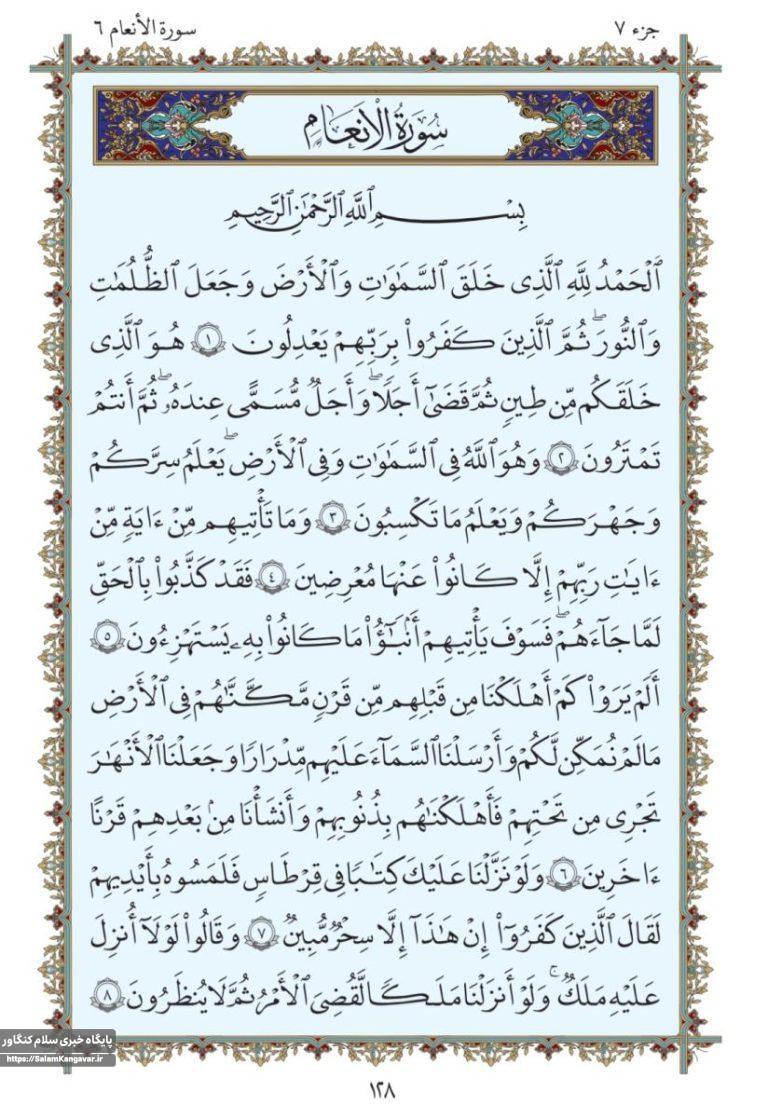 جزء ٧
سورة الأنعام ٦
سُورَةُ الْأَنعَامِ
بِسْمِ ٱللَّهِ ٱلرَّحْمَٰنِ ٱلرَّحِيمِ
ٱلْحَمْدُ لِلَّهِ ٱلَّذِى خَلَقَ ٱلسَّمَٰوَٰتِ وَٱلْأَرْضَ وَجَعَلَ ٱلظُّلُمَٰتِ
وَٱلنُّورَ ۖ ثُمَّ ٱلَّذِينَ كَفَرُوا۟ بِرَبِّهِمْ يَعْدِلُونَ ١ هُوَ ٱلَّذِى
خَلَقَكُم مِّن طِينٍ ثُمَّ قَضَىٰٓ أَجَلًا ۖ وَأَجَلٌ مُّسَمًّى عِندَهُۥ ۖ ثُمَّ أَنتُمْ
تَمْتَرُونَ ٢ وَهُوَ ٱللَّهُ فِى ٱلسَّمَٰوَٰتِ وَفِى ٱلْأَرْضِ ۖ يَعْلَمُ سِرَّكُمْ
وَجَهْرَكُمْ وَيَعْلَمُ مَا تَكْسِبُونَ ٣ وَمَا تَأْتِيهِم مِّنْ ءَايَةٍ مِّنْ
ءَايَٰتِ رَبِّهِمْ إِلَّا كَانُوا۟ عَنْهَا مُعْرِضِينَ ٤ فَقَدْ كَذَّبُوا۟ بِٱلْحَقِّ
لَمَّا جَآءَهُمْ ۖ فَسَوْفَ يَأْتِيهِمْ أَنۢبَٰٓؤُا۟ مَا كَانُوا۟ بِهِۦ يَسْتَهْزِءُونَ ٥
أَلَمْ يَرَوْا۟ كَمْ أَهْلَكْنَا مِن قَبْلِهِم مِّن قَرْنٍ مَّكَّنَّٰهُمْ فِى ٱلْأَرْضِ
مَا لَمْ نُمَكِّن لَّكُمْ وَأَرْسَلْنَا ٱلسَّمَآءَ عَلَيْهِم مِّدْرَارًا وَجَعَلْنَا ٱلْأَنْهَٰرَ
تَجْرِى مِن تَحْتِهِمْ فَأَهْلَكْنَٰهُم بِذُنُوبِهِمْ وَأَنشَأْنَا مِنۢ بَعْدِهِمْ قَرْنًا
ءَاخَرِينَ ٦ وَلَوْ نَزَّلْنَا عَلَيْكَ كِتَٰبًا فِى قِرْطَاسٍ فَلَمَسُوهُ بِأَيْدِيهِمْ
لَقَالَ ٱلَّذِينَ كَفَرُوٓا۟ إِنْ هَٰذَآ إِلَّا سِحْرٌ مُّبِينٌ ٧ وَقَالُوا۟ لَوْلَآ أُنزِلَ
عَلَيْهِ مَلَكٌ ۖ وَلَوْ أَنزَلْنَا مَلَكًا لَّقُضِىَ ٱلْأَمْرُ ثُمَّ لَا يُنظَرُونَ ٨
پایگاه خبری سلام کنگاور
https://SalamKangavar.ir
١٢٨